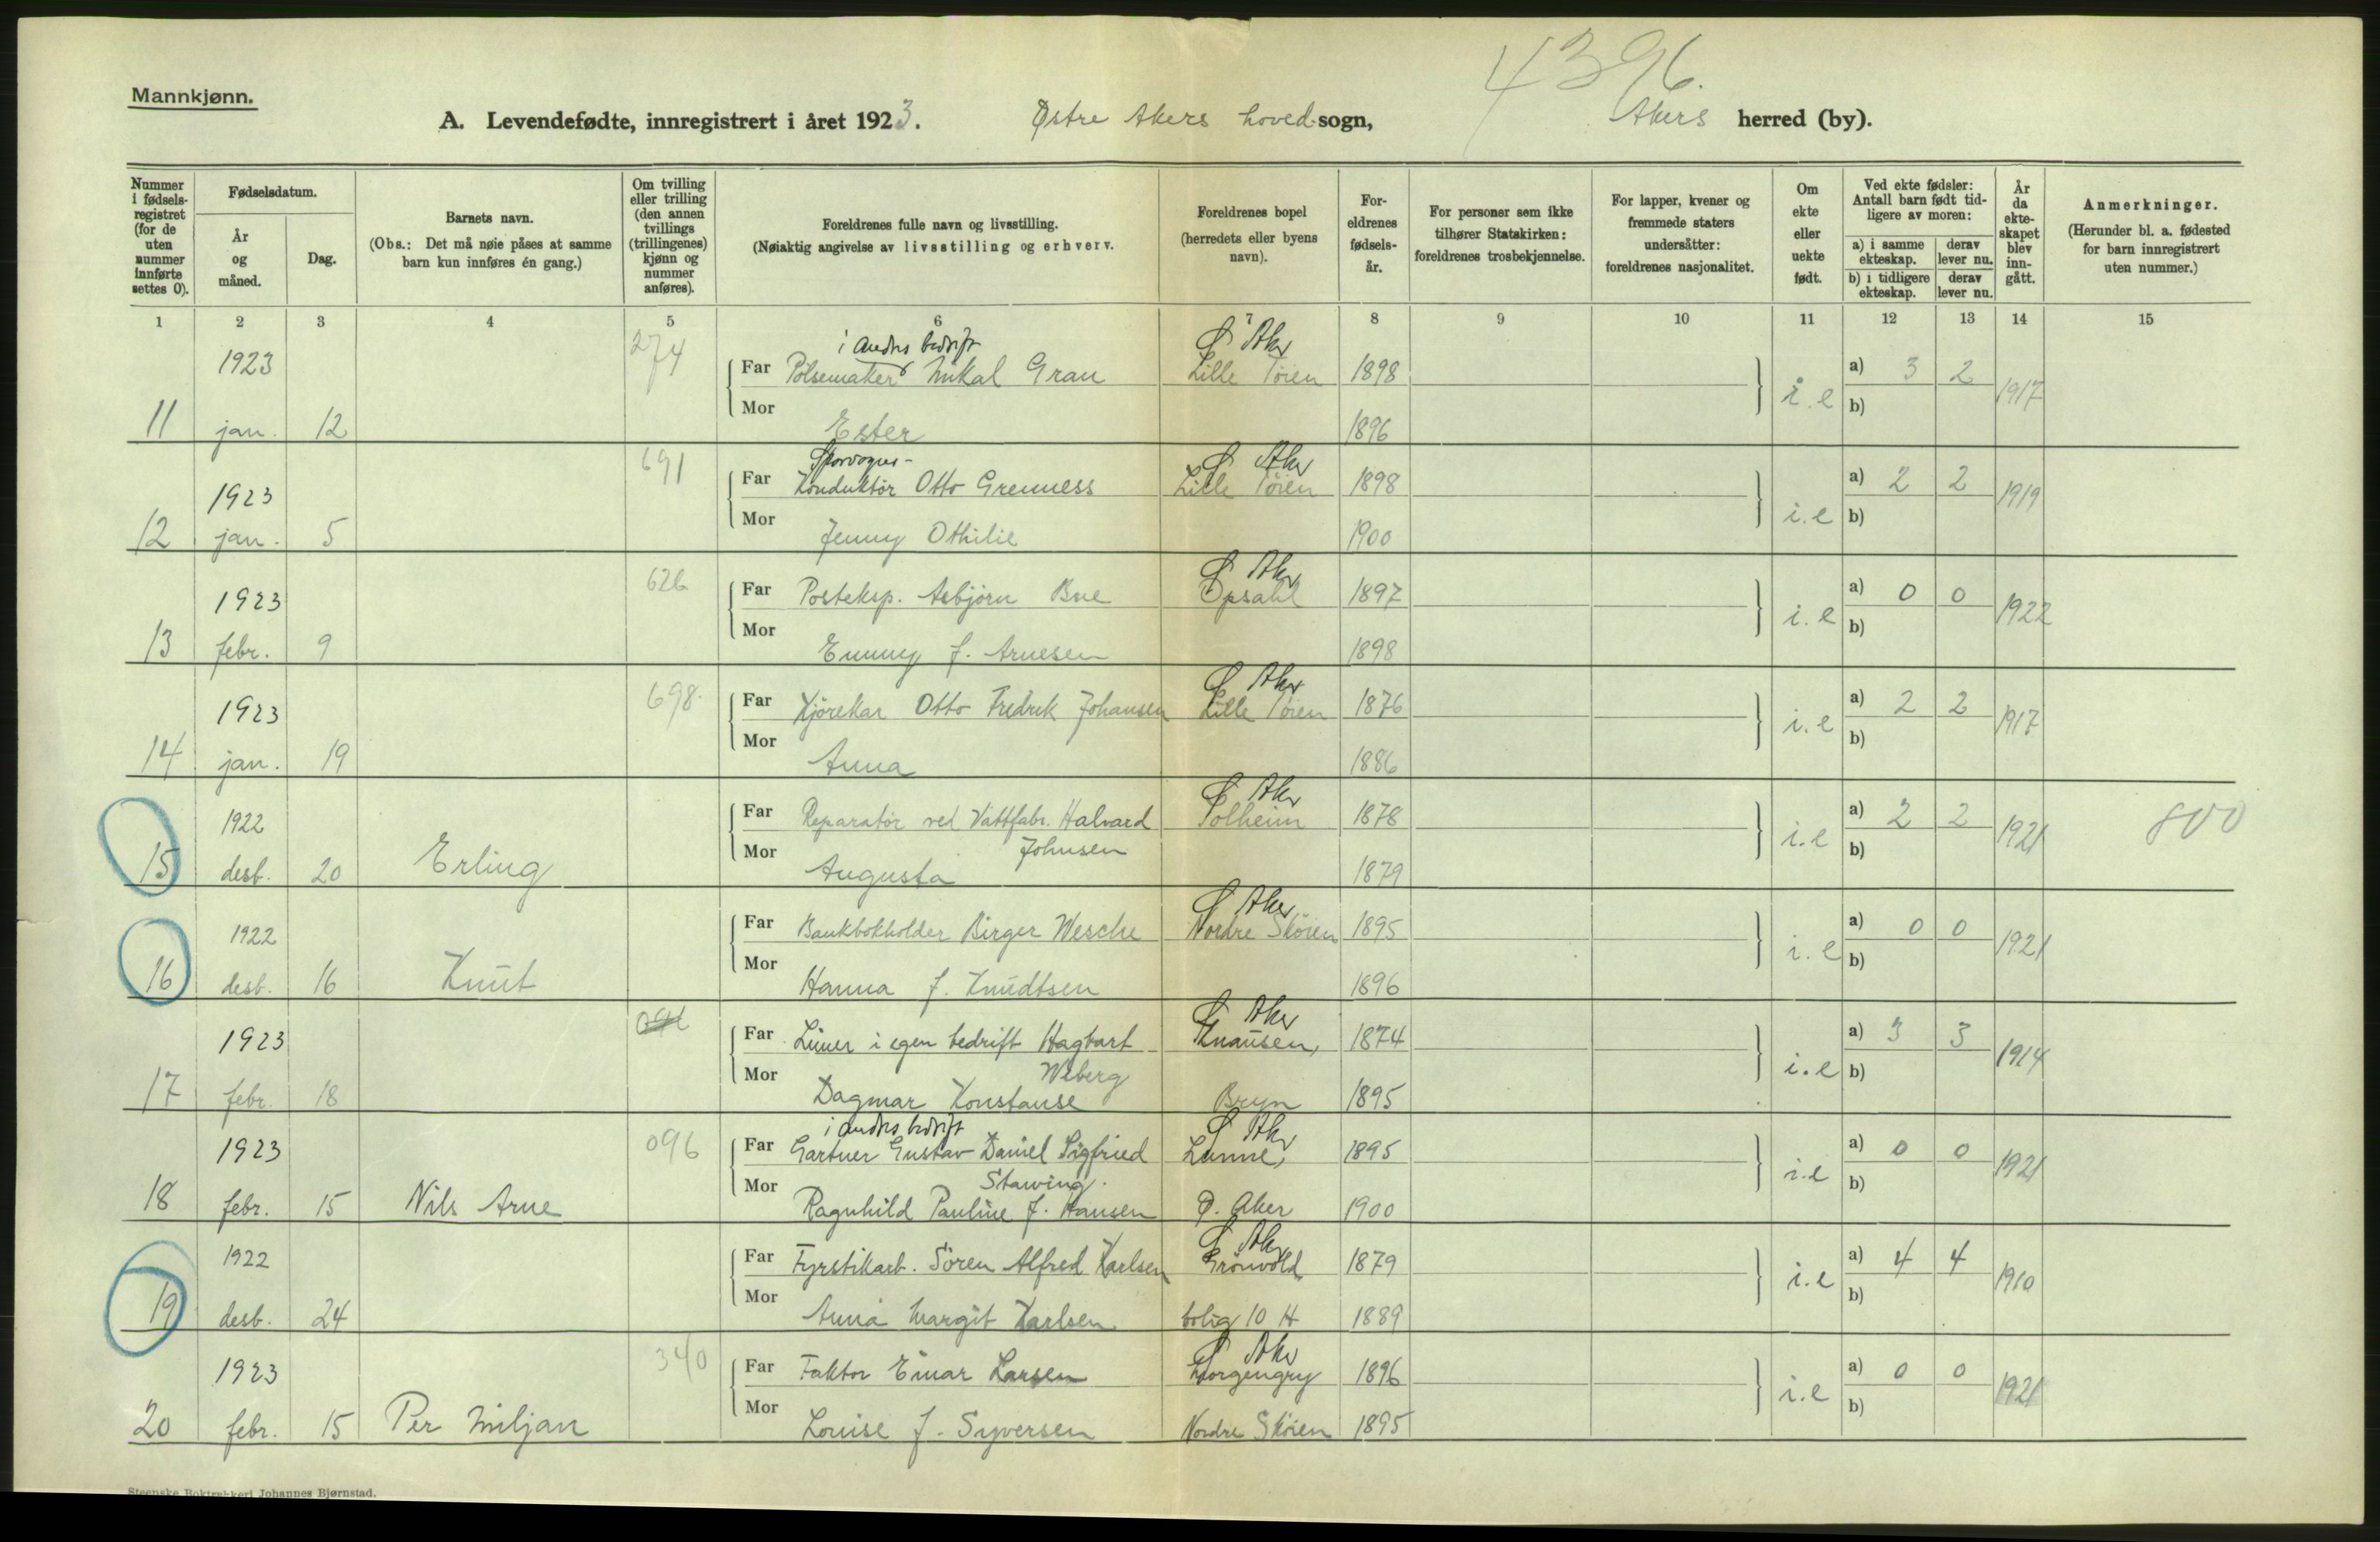 4396.
Mannkjønn.
A. Levendefødte, innregistrert i året 1923. Østre Akers hoved-sogn, Akers herred (by).
Nummer i fødsels-registret (for de uten nummer innførte settes 0).
Fødselsdatum.
År og måned.
Dag.
Barnets navn.
(Obs.: Det må nøie påses at samme barn kun innføres én gang.)
Om tvilling eller trilling (den annen tvillings (trillingenes) kjønn og nummer anføres).
Foreldrenes fulle navn og livsstilling.
(Nøiaktig angivelse av livsstilling og erhverv.
Foreldrenes bopel (herredets eller byens navn).
For-eldrenes fødsels-år.
For personer som ikke tilhører Statskirken: foreldrenes trosbekjennelse.
For lapper, kvener og fremmede staters undersåtter: foreldrenes nasjonalitet.
Om ekte eller uekte født.
Ved ekte fødsler: Antall barn født tid-ligere av moren:
a) i samme ekteskap. derav lever nu.
b) i tidligere ekteskap. derav lever nu.
År da ekte-skapet blev inn-gått.
Anmerkninger.
(Herunder bl. a. fødested for barn innregistrert uten nummer.)
1 2 3 4 5 6 7 8 9 10 11 12 13 14 15
274 i andres bedrift Ø Aker
1923 Far Pølsemaker Mikal Grau Lille Tøien 1898 i.e a) 3 2 1917
11 jan. 12 Mor Ester 1896 b)
691 Sporvogns- Ø Aker
1923 Far Konduktør Otto Grenness Lille Tøien 1898 i.e a) 2 2 1919
12 jan. 5 Mor Jenny Othilie 1900 b)
626 Ø Aker
1923 Far Posteksp. Asbjørn Bue Opsahl 1897 i.e a) 0 0 1922
13 febr. 9 Mor Emmy f. Arnesen 1898 b)
698 Ø Aker
1923 Far Kjørekar Otto Fredrik Johansen Lille Tøien 1876 i.e a) 2 2 1917
14 jan. 19 Mor Anna 1886 b)
Ø Aker
1922 Far Reparatør ved Vattfabr. Halvard Johnsen Solheim 1878 i.e a) 2 2 1921 800
15 desb. 20 Erling Mor Augusta 1879 b)
Ø Aker
1922 Far Bankbokholder Birger Wesche Nordre Skøien 1895 i.e a) 0 0 1921
16 desb. 16 Knut Mor Hanna f. Knudtsen 1896 b)
Ø Aker
1923 Far Limer i egen bedrift Hagbart Wiberg Knausen, 1874 i.e a) 3 3 1914
17 febr. 18 Mor Dagmar Konstanse Bryn 1895 b)
096 i andres bedrift Ø Aker
1923 Far Gartner Gustav Daniel Sigfried Stawing. Lunne, 1895 i.e a) 0 0 1921
18 febr. 15 Nils Arne Mor Ragnhild Pauline f. Hansen Ø. Aker 1900 b)
Ø Aker
1922 Far Fyrstikarb. Søren Alfred Karlsen Grønvold 1879 i.e a) 4 4 1910
19 desb. 24 Mor Anna Margit Karlsen bolig 10 H 1889 b)
340 Ø Aker
1923 Far Faktor Einar Larsen Morgengry 1896 i.e a) 0 0 1921
20 febr. 15 Per Miljan Mor Louise f. Syversen Nordre Skøien 1895 b)
Steenske Boktrykkeri Johannes Bjørnstad.